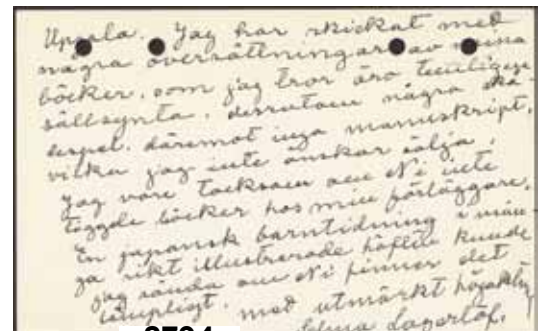 Upsala. Jag har skickat med
några översättningar av mina
böcker, som jag tror äro temligen
sällsynta. dessutom några
däremot inga manuskript,
vilka jag inte önskar sälja.
Jag vore tacksam om Ni inte
böcker hos min förläggare.
En japansk barntidning i
ga rikt illustrerade häften kunde
jag sända om Ni finner det
lämpligt. med utmärkt högaktn
Selma Lagerlöf.